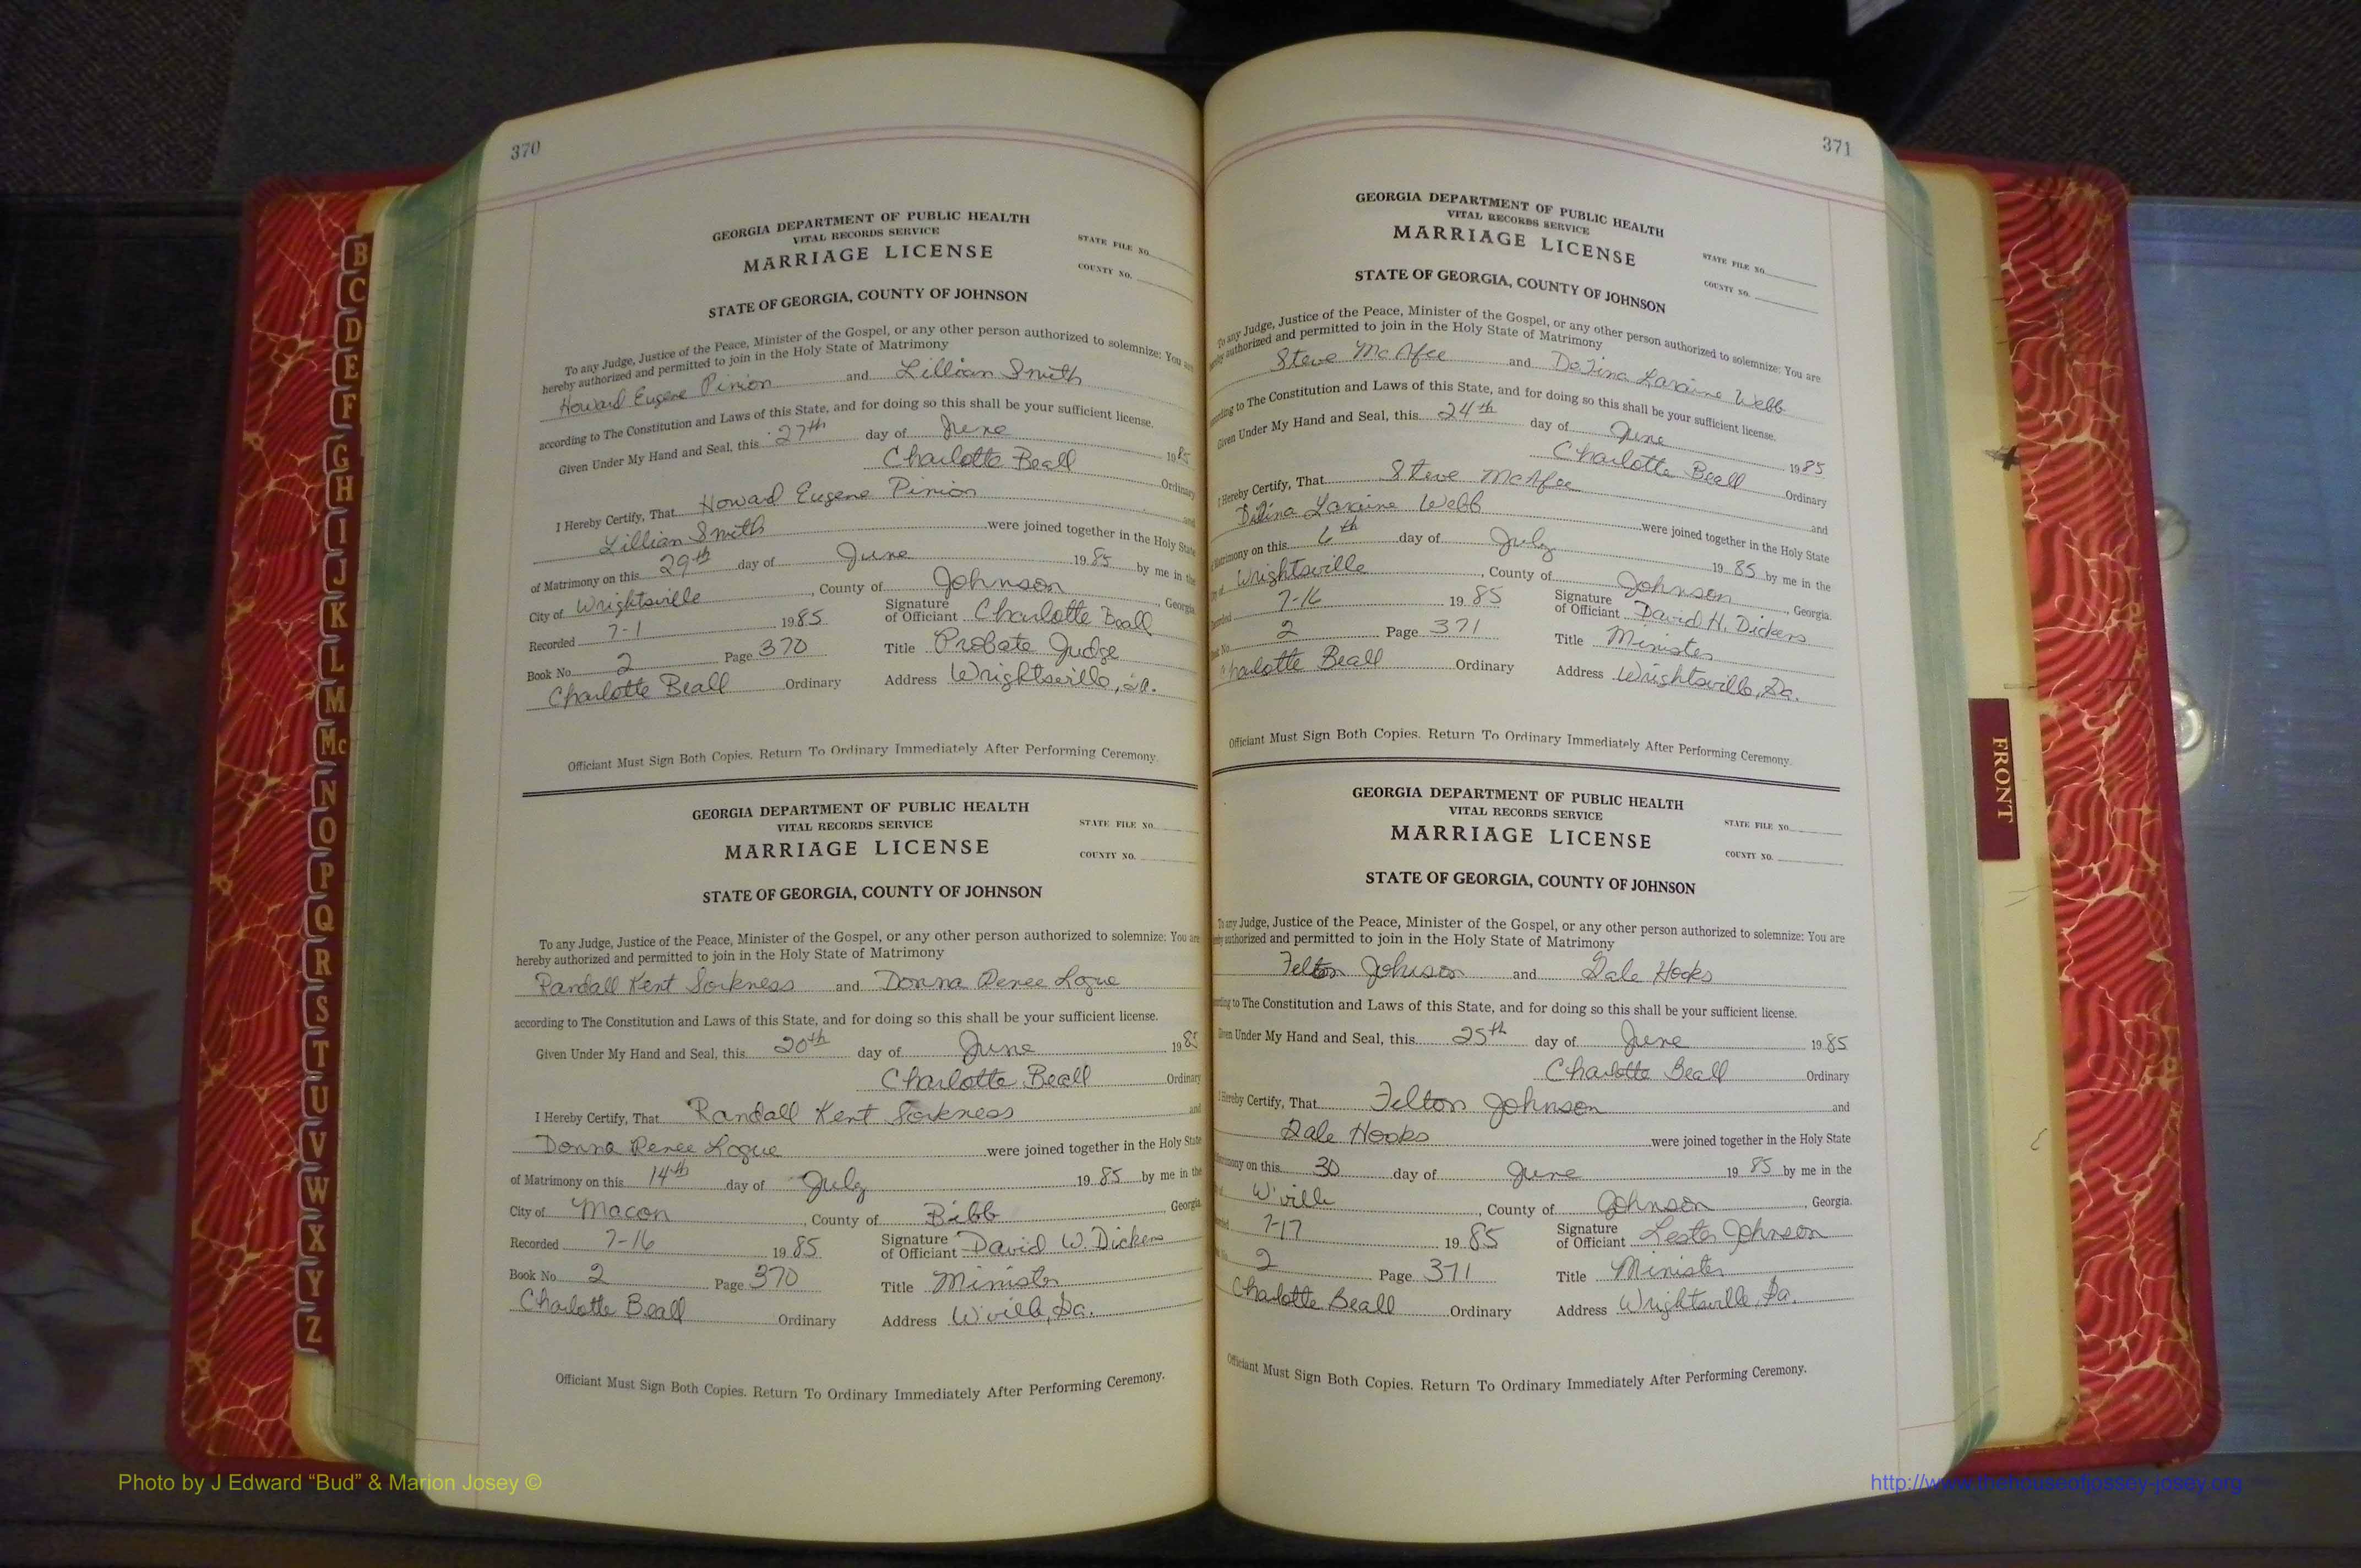 370
GEORGIA DEPARTMENT OF PUBLIC HEALTH
VITAL RECORDS SERVICE
MARRIAGE LICENSE
STATE FILE NO.
COUNTY NO.
STATE OF GEORGIA, COUNTY OF JOHNSON
To any Judge, Justice of the Peace, Minister of the Gospel, or any other person authorized to solemnize: You are
hereby authorized and permitted to join in the Holy State of Matrimony
Howard Eugene Pinion and Lillian Smith
according to The Constitution and Laws of this State, and for doing so this shall be your sufficient license.
Given Under My Hand and Seal, this 27th day of June 1985
Charlotte Beall Ordinary
I Hereby Certify, That Howard Eugene Pinion and
Lillian Smith were joined together in the Holy State
of Matrimony on this 29th day of June 1985 by me in the
City of Wrightsville, County of Johnson, Georgia
Recorded 7-1 1985 Signature of Officiant Charlotte Beall
Book No. 2 Page 370 Title Probate Judge
Charlotte Beall Ordinary Address Wrightsville, Ga.
Officiant Must Sign Both Copies. Return To Ordinary Immediately After Performing Ceremony.
GEORGIA DEPARTMENT OF PUBLIC HEALTH
VITAL RECORDS SERVICE
MARRIAGE LICENSE
STATE FILE NO.
COUNTY NO.
STATE OF GEORGIA, COUNTY OF JOHNSON
To any Judge, Justice of the Peace, Minister of the Gospel, or any other person authorized to solemnize: You are
hereby authorized and permitted to join in the Holy State of Matrimony
Randall Kent Sorkness and Donna Renee Logue
according to The Constitution and Laws of this State, and for doing so this shall be your sufficient license.
Given Under My Hand and Seal, this 20th day of June 1985
Charlotte Beall Ordinary
I Hereby Certify, That Randall Kent Sorkness and
Donna Renee Logue were joined together in the Holy State
of Matrimony on this 14th day of July 1985 by me in the
City of Macon, County of Bibb Georgia
Recorded 7-16 1985 Signature of Officiant David W. Dickens
Book No. 2 Page 370 Title Minister
Charlotte Beall Ordinary Address W'ville, Ga.
Officiant Must Sign Both Copies. Return To Ordinary Immediately After Performing Ceremony.
371
GEORGIA DEPARTMENT OF PUBLIC HEALTH
VITAL RECORDS SERVICE
MARRIAGE LICENSE
STATE FILE NO.
COUNTY NO.
STATE OF GEORGIA, COUNTY OF JOHNSON
To any Judge, Justice of the Peace, Minister of the Gospel, or any other person authorized to solemnize: You are
authorized and permitted to join in the Holy State of Matrimony
Steve McAfee and DeTina Laraine Webb
to The Constitution and Laws of this State, and for doing so this shall be your sufficient license.
Given Under My Hand and Seal, this 24th day of June 1985
Charlotte Beall Ordinary
I Hereby Certify, That Steve McAfee and
DeTina Laraine Webb were joined together in the Holy State
of Matrimony on this 6th day of July 1985 by me in the
Wrightsville, County of Johnson, Georgia.
7-16 1985 Signature of Officiant David H. Dickens
2 Page 371 Title Minister
Charlotte Beall Ordinary Address Wrightsville, Ga.
Officiant Must Sign Both Copies. Return To Ordinary Immediately After Performing Ceremony.
GEORGIA DEPARTMENT OF PUBLIC HEALTH
VITAL RECORDS SERVICE
MARRIAGE LICENSE
STATE FILE NO.
COUNTY NO.
STATE OF GEORGIA, COUNTY OF JOHNSON
To any Judge, Justice of the Peace, Minister of the Gospel, or any other person authorized to solemnize: You are
authorized and permitted to join in the Holy State of Matrimony
Felton Johnson and Gale Hooks
to The Constitution and Laws of this State, and for doing so this shall be your sufficient license.
Given Under My Hand and Seal, this 25th day of June 1985
Charlotte Beall Ordinary
I Hereby Certify, That Felton Johnson and
Gale Hooks were joined together in the Holy State
on this 30 day of June 1985 by me in the
W'ville, County of Johnson, Georgia.
7-17 1985 Signature of Officiant Lester Johnson
2 Page 371 Title Minister
Charlotte Beall Ordinary Address Wrightsville, Ga.
Officiant Must Sign Both Copies. Return To Ordinary Immediately After Performing Ceremony.
B
C
D
E
F
G
H
I
J
K
L
M
Mc
N
O
P
Q
R
S
T
U
V
W
X
Y
Z
FRONT
Photo by J Edward “Bud” & Marion Josey ©
http://www.thehouseofjossey-josey.org